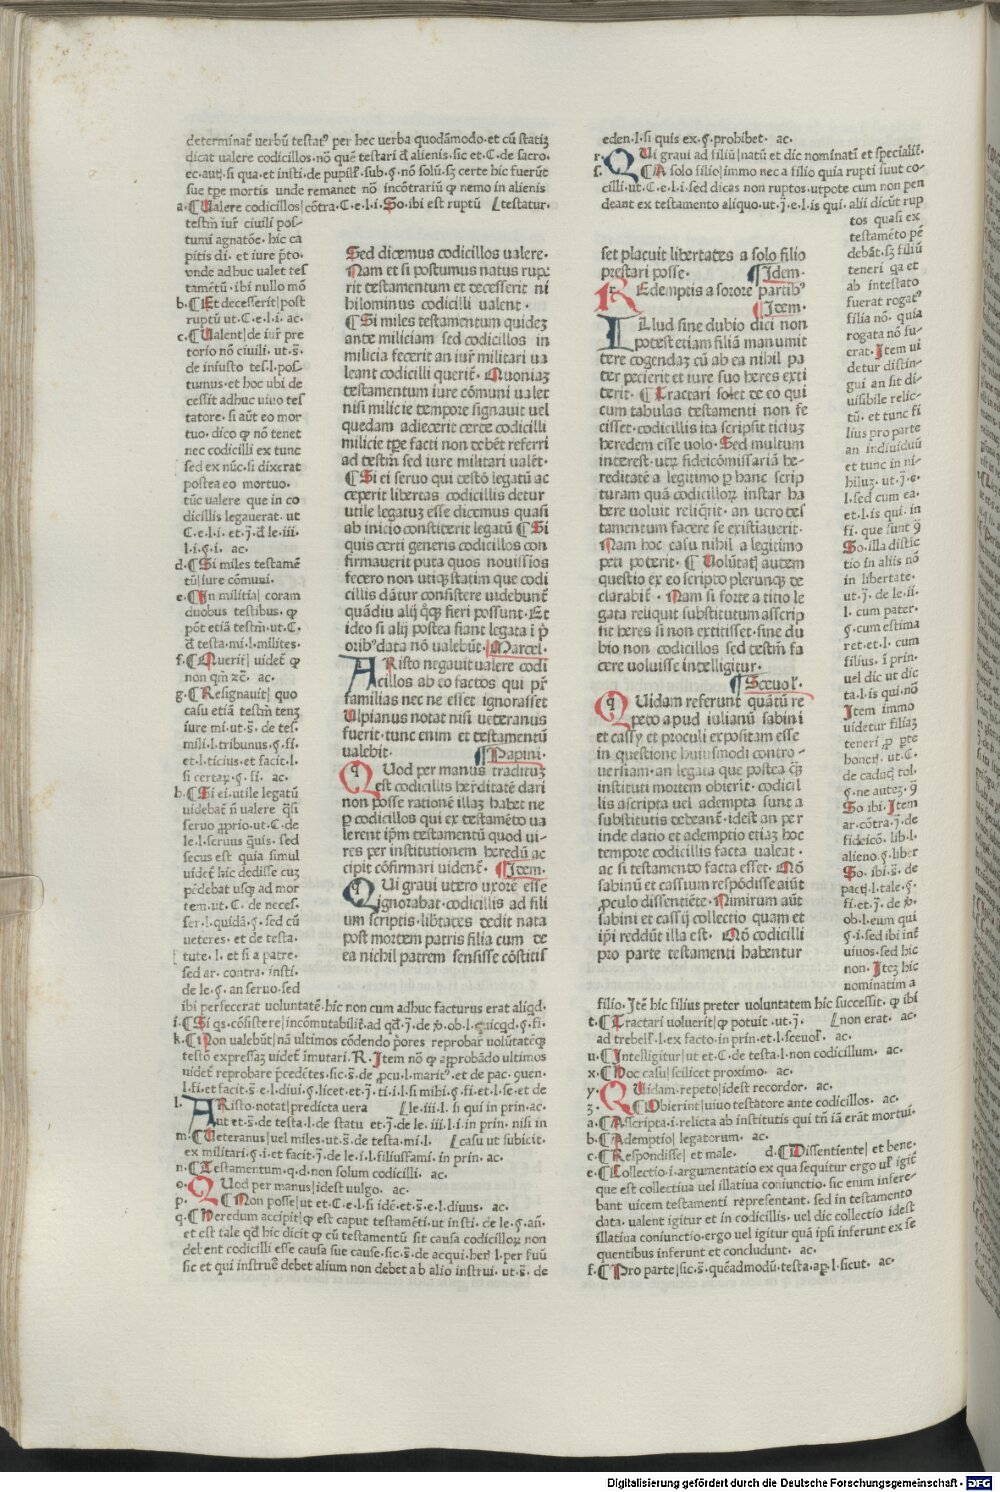 determinat᷒ verbū testatꝰ per hec verba quodāmodo·et cū statiʒ
dicat ualere codicillos·nō quē testari đ alienis·sic et·C·de sacro.
ec·autʒ·si qua·et insti·de pupilɫ·sub·§·nō solū·sʒ certe hic fuerūt
sue tꝑe mortis unde remanet nō incōtrariū ꝙ nemo in alienis
a·¶Ualere codicillos|cōtra·C·e·l·i·So·ibi est ruptū [testatur.
testm̄ iur᷒ ciuili pos-
tumi agnatōe·hic ca
pitis di·et iure p̄to·
vnde adhuc ualet tes
tamētū·ibi nullo mō
b·¶Et decesserit|post
ruptū ut·C·e·l·i· ac.
c·¶Ualent|de iur᷒ pre
torio nō ciuili·ut·s̄·
de iniusto tes·l·pos-
tumus·et hoc ubi de
cessit adhuc uiuo tes
tatore·si aūt eo mor
tuo·dico ꝙ nō tenet
nec codicilli ex tunc
sed ex nūc·si dixerat
postea eo mortuo·
tūc ualere que in co
dicillis legauerat·ut
C·e·l·i·et·j̄·đ le·iii·
l·i·§·i· ac.
d·¶Si miles testamē
tū|iure cōmuni.
e·¶In militia| coram
duobus testibus·ꝙ
pōt etiā testm̄·ut·C·
đ testa·mi·l·milites·
f·¶Querit| uidet᷒ ꝙ
non qm̄ ⁊c̄· ac.
g·¶Resignauit| quo
casu etiā testm̄ tenʒ
iure mi·ut·s̄·de tes·
mili·l·tribunus·§·fi·
et·l·ticius·et facit·l·
si certaꝝ·§·fi· ac.
h·¶Si ei·utile legatū
uidebat᷒ n̄ ualere q̄si
seruo ꝓprio·ut·C·de
le·l·seruus q̄uis·sed
secus est quia simul
uidet᷒ hic dedisse cuʒ
pēdebat usqʒ ad mor
tem·ut·C·de neces·
ser·l·quidā·§·sed cū
ueteres·et de testa·
tute·l·et si a patre·
sed ar·contra·insti·
de le·§·an seruo·sed
ibi perfecerat voluntatē·hic non cum adhuc facturus erat aliqd·
i·¶Si qs·cōsistere|incōmutabilit᷒·ad qđ·j̄·de ꝟ·ob·l·quicqd·§·fi·
k·¶Non ualebūt|nā ultimos cōdendo p̄ores reprobar᷒ uolūtatēqʒ
testō expressaʒ uidet᷒ īmutari·R·Item nō ꝙ approbādo ultimos
uidet᷒ reprobare p̄cedētes·sic·s̄·de ꝓcu·l·maritꝰ·et de pac·9uen·
l·fi·et facit·s̄·e·l·diui·§·licet·et·j̄·ti·i·l·si mihi·§·fi·et·l·se·et de
l· ARisto·notat|predicta uera [le·iii·l·si qui in prin·ac.
Aut et·s̄·de testa·l·de statu et·j̄·de le·iii·l·i·in prin·nisi in
m·¶Ueteranus|uel miles·ut·s̄·de testa·mi·l· [casu ut subicit.
ex militari·§·i·et facit·j̄·de le·i·l·filiusfami·in prin· ac.
n·¶Testamentum·q·d·non solum codicilli· ac.
o· QUod per manus|idest uulgo· ac.
p· ¶Non posse|ut et·C·e·l·si idē·et·s̄·e·l·diuus· ac.
q·¶Heredum accipit|ꝙ est caput testamēti·ut insti·de le·§·an̄·
et est tale qđ hic dicit ꝙ cū testamentū sit causa codicilloꝝ non
debent codicilli esse causa sue cause·sic·s̄·de acqui·her᷒ l·per fuū
sic et qui instruē debet alium non debet ab alio instrui·ut·s̄·de
Sed dicemus codicillos ualere·
Nam et si postumus natus rupe
rit testamentum et decesserit ni
hilominus codicilli ualent·
¶Si miles testamentum quideʒ
ante miliciam sed codicillos in
milicia fecerit an iur᷒ militari ua
leant codicilli querit᷒·Quoniaʒ
testamentum iure cōmuni ualet
nisi milicie tempore signauit uel
quedam adiecerit certe codicilli
milicie tꝑe facti non debēt referri
ad testm̄ sed iure militari ualēt·
¶Si ei seruo qui testō legatū ac
ceperit libertas codicillis detur
utile legatuʒ esse dicemus quasi
ab inicio constiterit legatū ¶Si
quis certi generis codicillos con
firmauerit puta quos nouissīos
fecero non utiqʒ statim que codi
cillis dātur consistere uidebunt᷒
quādiu alij q̄qʒ fieri possunt·Et
ideo si alij postea fiant legata i p̄
oribꝰ data nō ualebūt·|Marcel·
ARisto negauit ualere codi
Acillos ab eo factos qui pr᷒
familias nec ne esset ignorasset
Ulpianus notat nisi ueteranus
fuerit·tunc enim et testamentū
ualebit· ¶Papini·
QUod per manus traditūʒ
est codicillis herditatē dari
non posse rationē illaʒ habet ne
ꝑ codicillos qui ex testamēto ua
lerent ip̄m testamentū quod ui-
res per institutionem heredū ac
cipit cōfirmari uident᷒· ¶Idem·
QUi graui utero uxorē esse
ignorabat·codicillis ad fili
um scriptis·libtates dedit nata
post mortem patris filia cum de
ea nichil patrem sensisse cōstitis
eden·l·si quis ex·§·prohibet· ac.
r· QUi graui ad filiū|natū et dic nominatī et specialit᷒.
s· ¶A solo filio|immo nec a filio quia rupti sunt co-
cilli·ut·C·e·l·i·sed dicas non ruptos·utpote cum non pen
deant ex testamento aliquo·ut·j̄·e·l·is qui· alii dicūt rup
tos quasi ex
testamēto pē
debāt·sʒ filiū
teneri qa et
ab intestato
fuerat rogatꝰ
filia nō·quia
rogata nō fu-
erat·Item ui
detur distin-
gui an sit di-
uisibile relic-
tū·et tunc fi
lius pro parte
an indiuiduū
et tunc in ni-
hiluʒ·ut·j̄·e·
l·sed cum ea·
et·l·is qui·in
fi·que sunt 9̄
So·illa distic
tio in aliis nō
in libertate·
ut·j̄·de le·ii·
l·cum pater·
§·cum estima
ret·et·l·cum
filius·i prin·
uel dic ut dic
ta·l·is qui·nō
Item immo
uidetur filiaʒ
teneri ꝓ pte
boneꝝ·ut·C·
de caducʒ tol·
§·ne autez·9̄
So·ibi·Item
ar·cōtra·j̄·de
fideicō·lib·l·
alieno·§·liber
So·ibi·s̄·de
pactʒ·l·tale·§·
fi·et·j̄·de ꝟ·
ob·l·eum qui
§·i·sed ibi int᷒
uiuos·sed hic
non·Iteʒ hic
nominatim a
set placuit libertates a solo filio
prestari posse· ¶Idem·
REdemptis a sorore partibꝰ
¶Item·
ILlud sine dubio dici non
potest etiam filiā manumit
tere cogendaʒ cū ab ea nihil pa
ter pecierit et iure suo heres exti
terit·¶Tractari solet de eo qui
cum tabulas testamenti non fe
cisset·codicillis ita scripsit ticiuʒ
heredem esse uolo·Sed multum
interest·utꝝ fideicōmissariā he-
reditatē a legitimo ꝑ hanc scrip
turam quā codicilloꝝ instar ha
bere uoluit reliq̄rit·an uero tes
tamentum facere se existiauerit·
Nam hoc casu nihil a legitimo
peti poterit·¶Uolūtatʒ autem
questio ex eo scripto plerunqʒ de
clarabit᷒·Nam si forte a titio le
gata reliquit substitutum asscrip
sit heres si non extitisset·sine du
bio non codicillos sed testm̄ fa
cere uoluisse intelligitur·
¶Sceuoɫ·
QUidam referunt quātū re
peto apud iulianū sabini
et cassy et proculi expositam esse
in questione huiusmodi contro-
uersiam·an legata que postea q̄ʒ
instituti mortem obierit·codicil
lis ascripta uel adempta sunt a
substitutis debeant·idest an per
inde datio et ademptio etiaʒ hoc
tempore codicillis facta ualeat·
ac si testamento facta esset·Nō
sabinū et cassium respōdisse aiūt
ꝓculo dissentiēte·Nimirum aūt
sabini et cassij collectio quam et
ip̄i reddūt illa est·Nō codicilli
pro parte testamenti habentur
filio·Itē hic filius preter uoluntatem hic successit·ꝙ ibi
t·¶Tractari uoluerit|ꝙ potuit ·ut·j̄· [non erat· ac.
ad trebelɫ·l·ex facto·in prin·et·l·sceuoɫ· ac.
u·¶Intelligitur|ut et·C·de testa·l·non codicillum· ac.
x·¶Hoc casu|scilicet proximo· ac.
y· QUidam·repeto|idest recordor· ac.
z· ¶Obierint|uiuo testatore ante codicillos· ac.
a·¶Ascripta·i·relicta ab institutis qui tn̄ iā erāt mortui·
b·¶Ademptio| legatorum· ac.
c·¶Respondisse| et male· d·¶Dissentiente| et bene·
e·¶Collectio·i·argumentatio ex qua sequitur ergo uɫ igit᷒
que est collectiua uel illatiua coniunctio·sic enim infere-
bant uicem testamenti representant·sed in testamento
data·ualent igitur et in codicillis·uel dic collectio idest
illatiua coniunctio·ergo uel igitur quā ipsi inferunt ex se
quentibus inferunt et concludunt· ac.
f·¶Pro parte|sic·s̄·quēadmodū·testa·ap·l·sicut· ac.
Digitalisierung gefördert durch die Deutsche Forschungsgemeinschaft - DFG